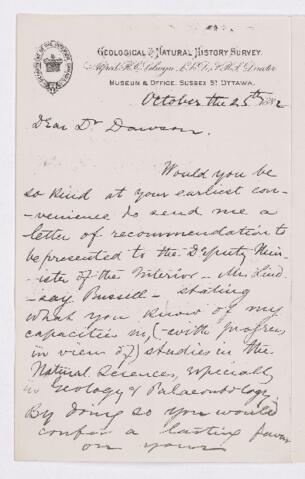 GEOLOGICAL & NATURAL HISTORY SURVEY.
Alfred R. C. Selwyn, L.L.D., F.R.S., Director
MUSEUM & OFFICE, SUSSEX ST OTTAWA.
October the 25th 1882
Dear Dr Dawson.
Would you be
so kind at your earliest con-
-venience to send me a
letter of recommendation to
be presented to the Deputy Min-
-ister of the Interior - Mr Lind-
-say Russell - stating
what you know of my
capacities in, (-with progress
in view of) studies in the
Natural Sciences, especially
in Geology & Palaeontology.
By doing so you would
confer a lasting favour
on yours